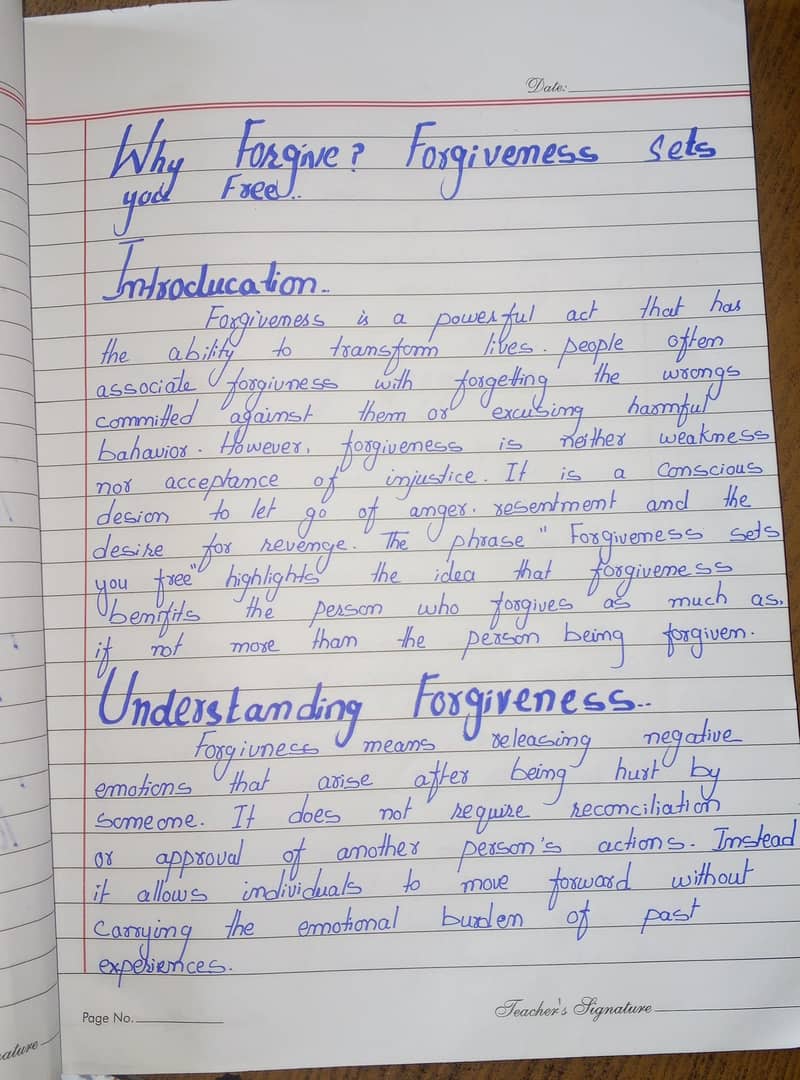 Date:
Why Forgive? Forgiveness sets
you Free..
Introducation..
Forgiveness is a powerful act that has
the ability to transform lives. people often
associate forgivness with forgetting the wrongs
committed against them or excusing harmful
bahavior. However, forgiveness is neither weakness
nor acceptance of injustice. It is a conscious
desion to let go of anger. resentment and the
desire for revenge. The phrase "Forgiveness sets
you free" highlights the idea that forgiveness
benifits the person who forgives as much as,
if not more than the person being forgiven.
Understanding Forgiveness..
Forgivness means releasing negative
emotions that arise after being hurt by
someone. It does not require reconciliation
or approval of another person's actions. Instead
it allows individuals to move forward without
carrying the emotional burden of past
experiences.
Page No.
Teacher's Signature
ature